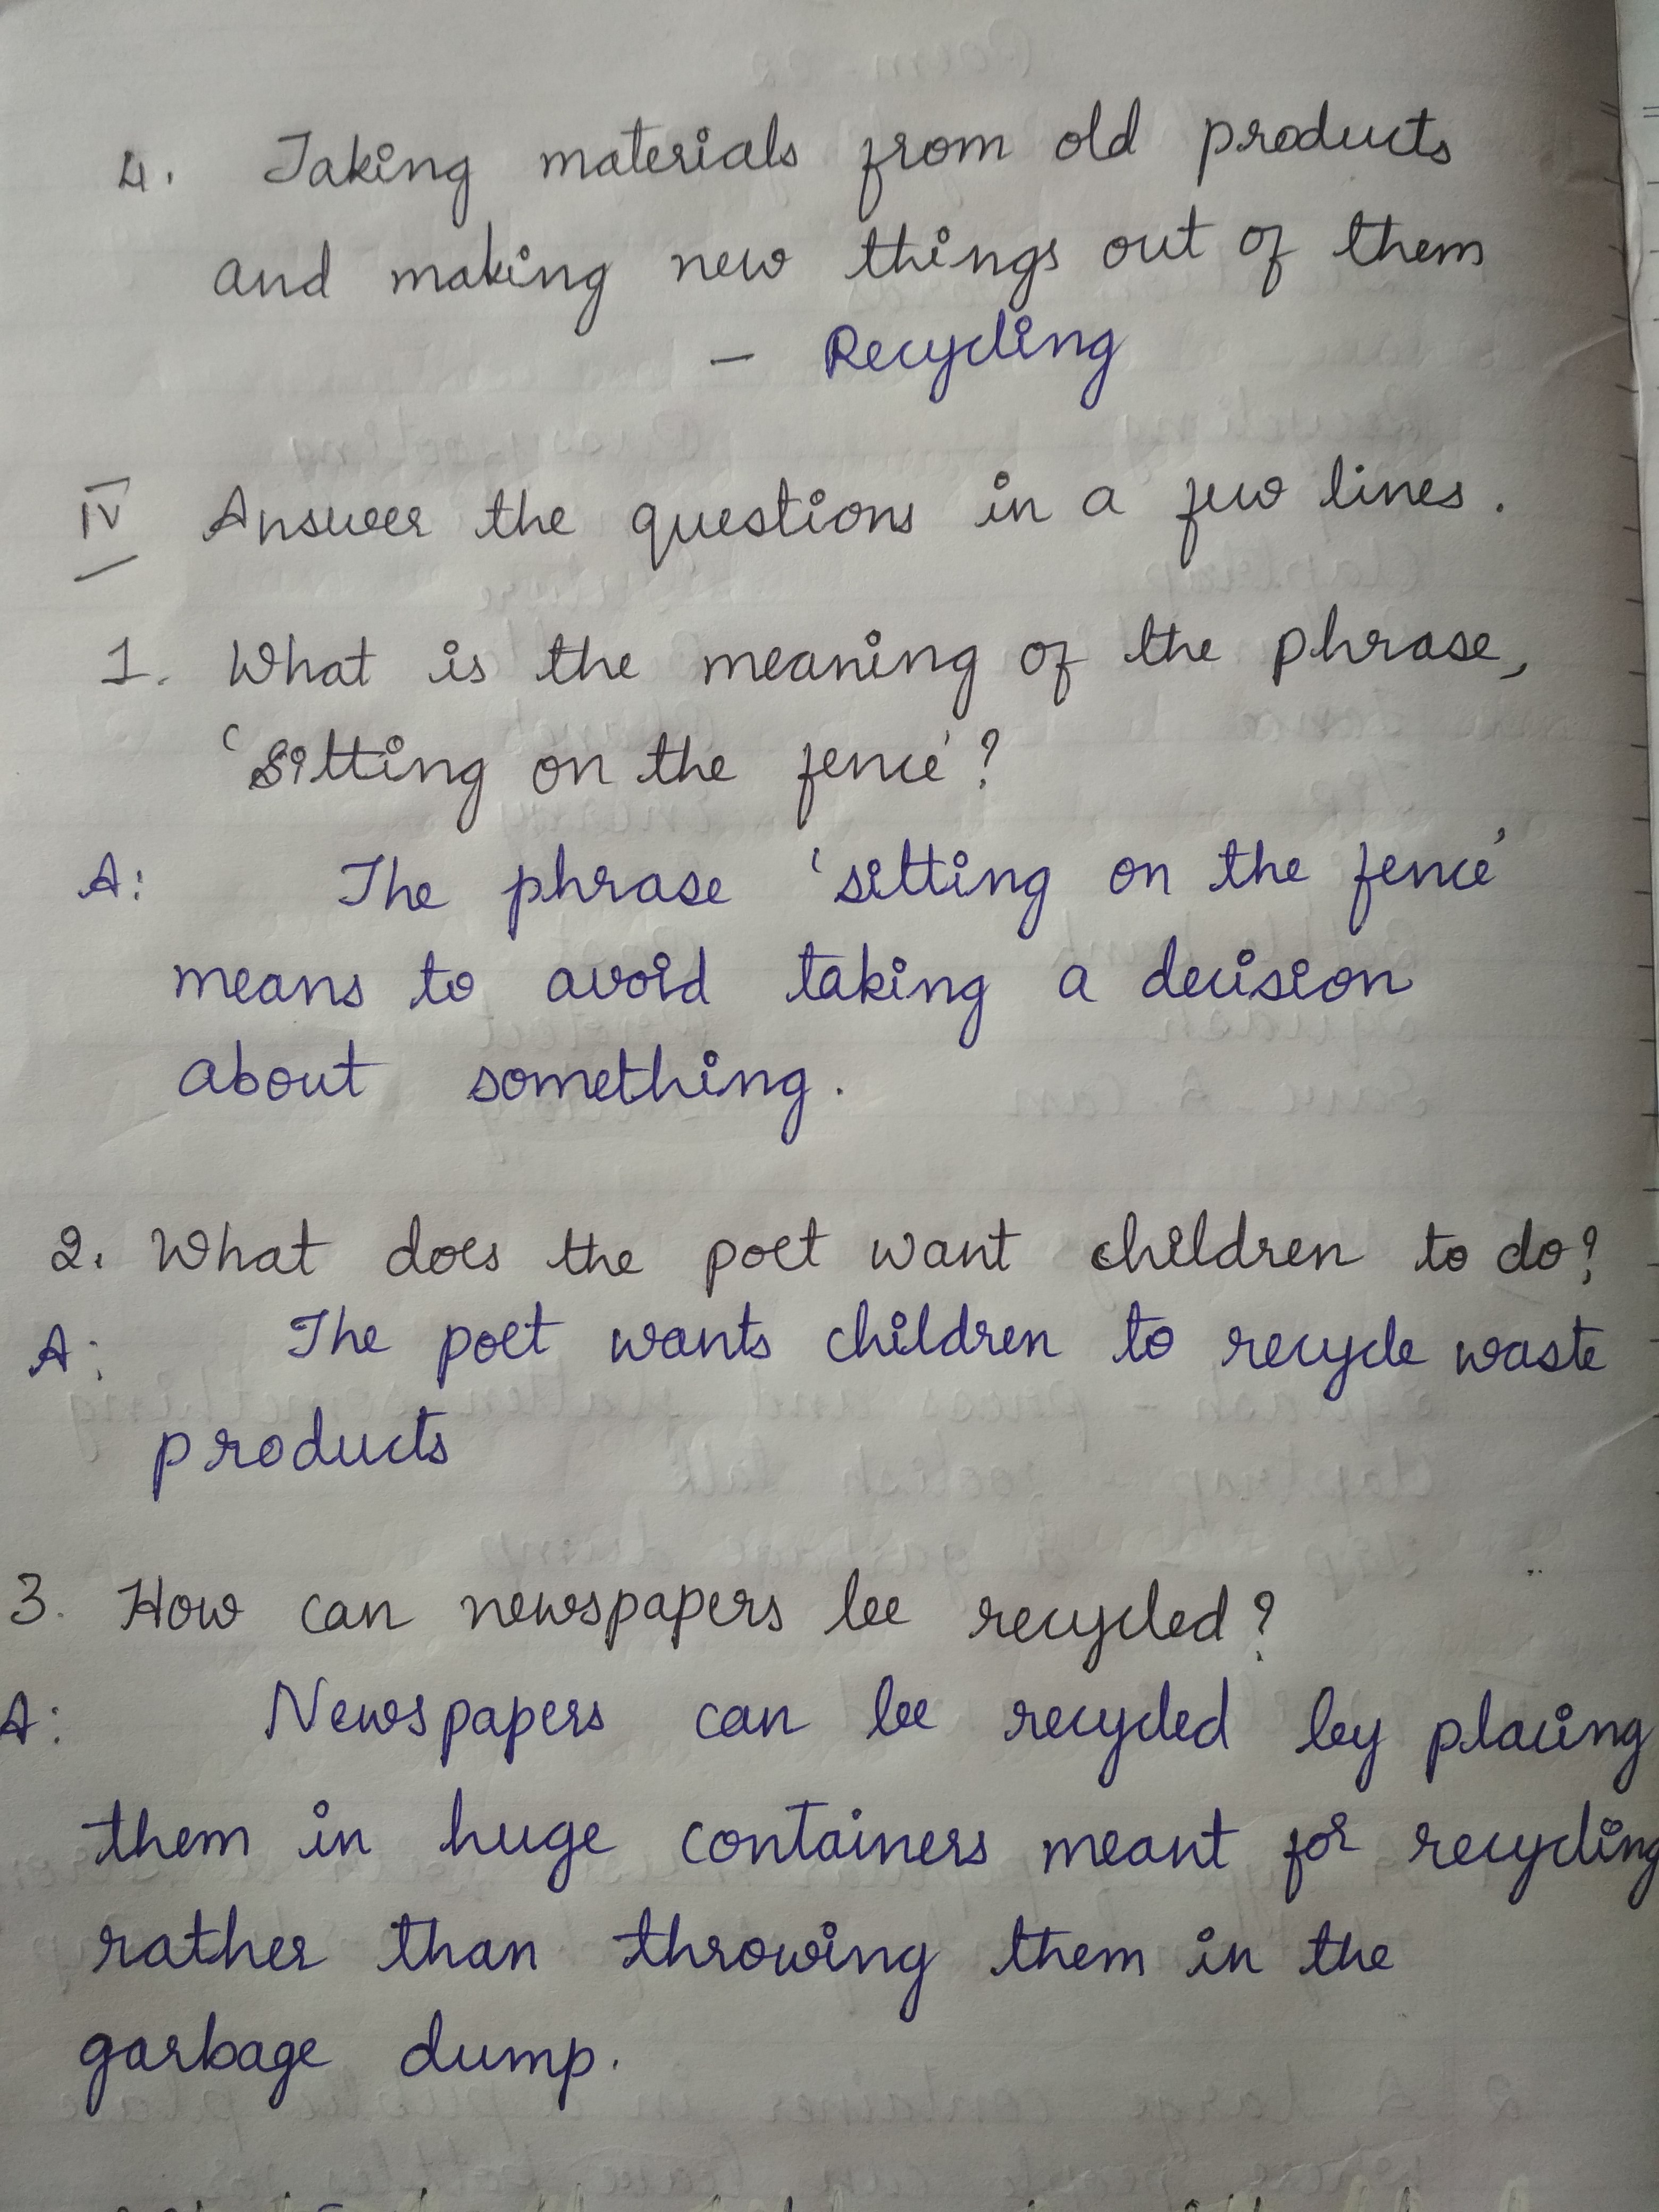 4. Taking materials from old products
and making new things out of them
- Recycling
IV Answer the questions in a few lines.
1. What is the meaning of the phrase,
'Sitting on the fence'?
A: The phrase 'sitting on the fence'
means to avoid taking a decision
about something.
2. What does the poet want children to do?
A: The poet wants children to recycle waste
products
3. How can newspapers be recycled?
A: Newspapers can be recycled by placing
them in huge containers meant for recycling
rather than throwing them in the
garbage dump.